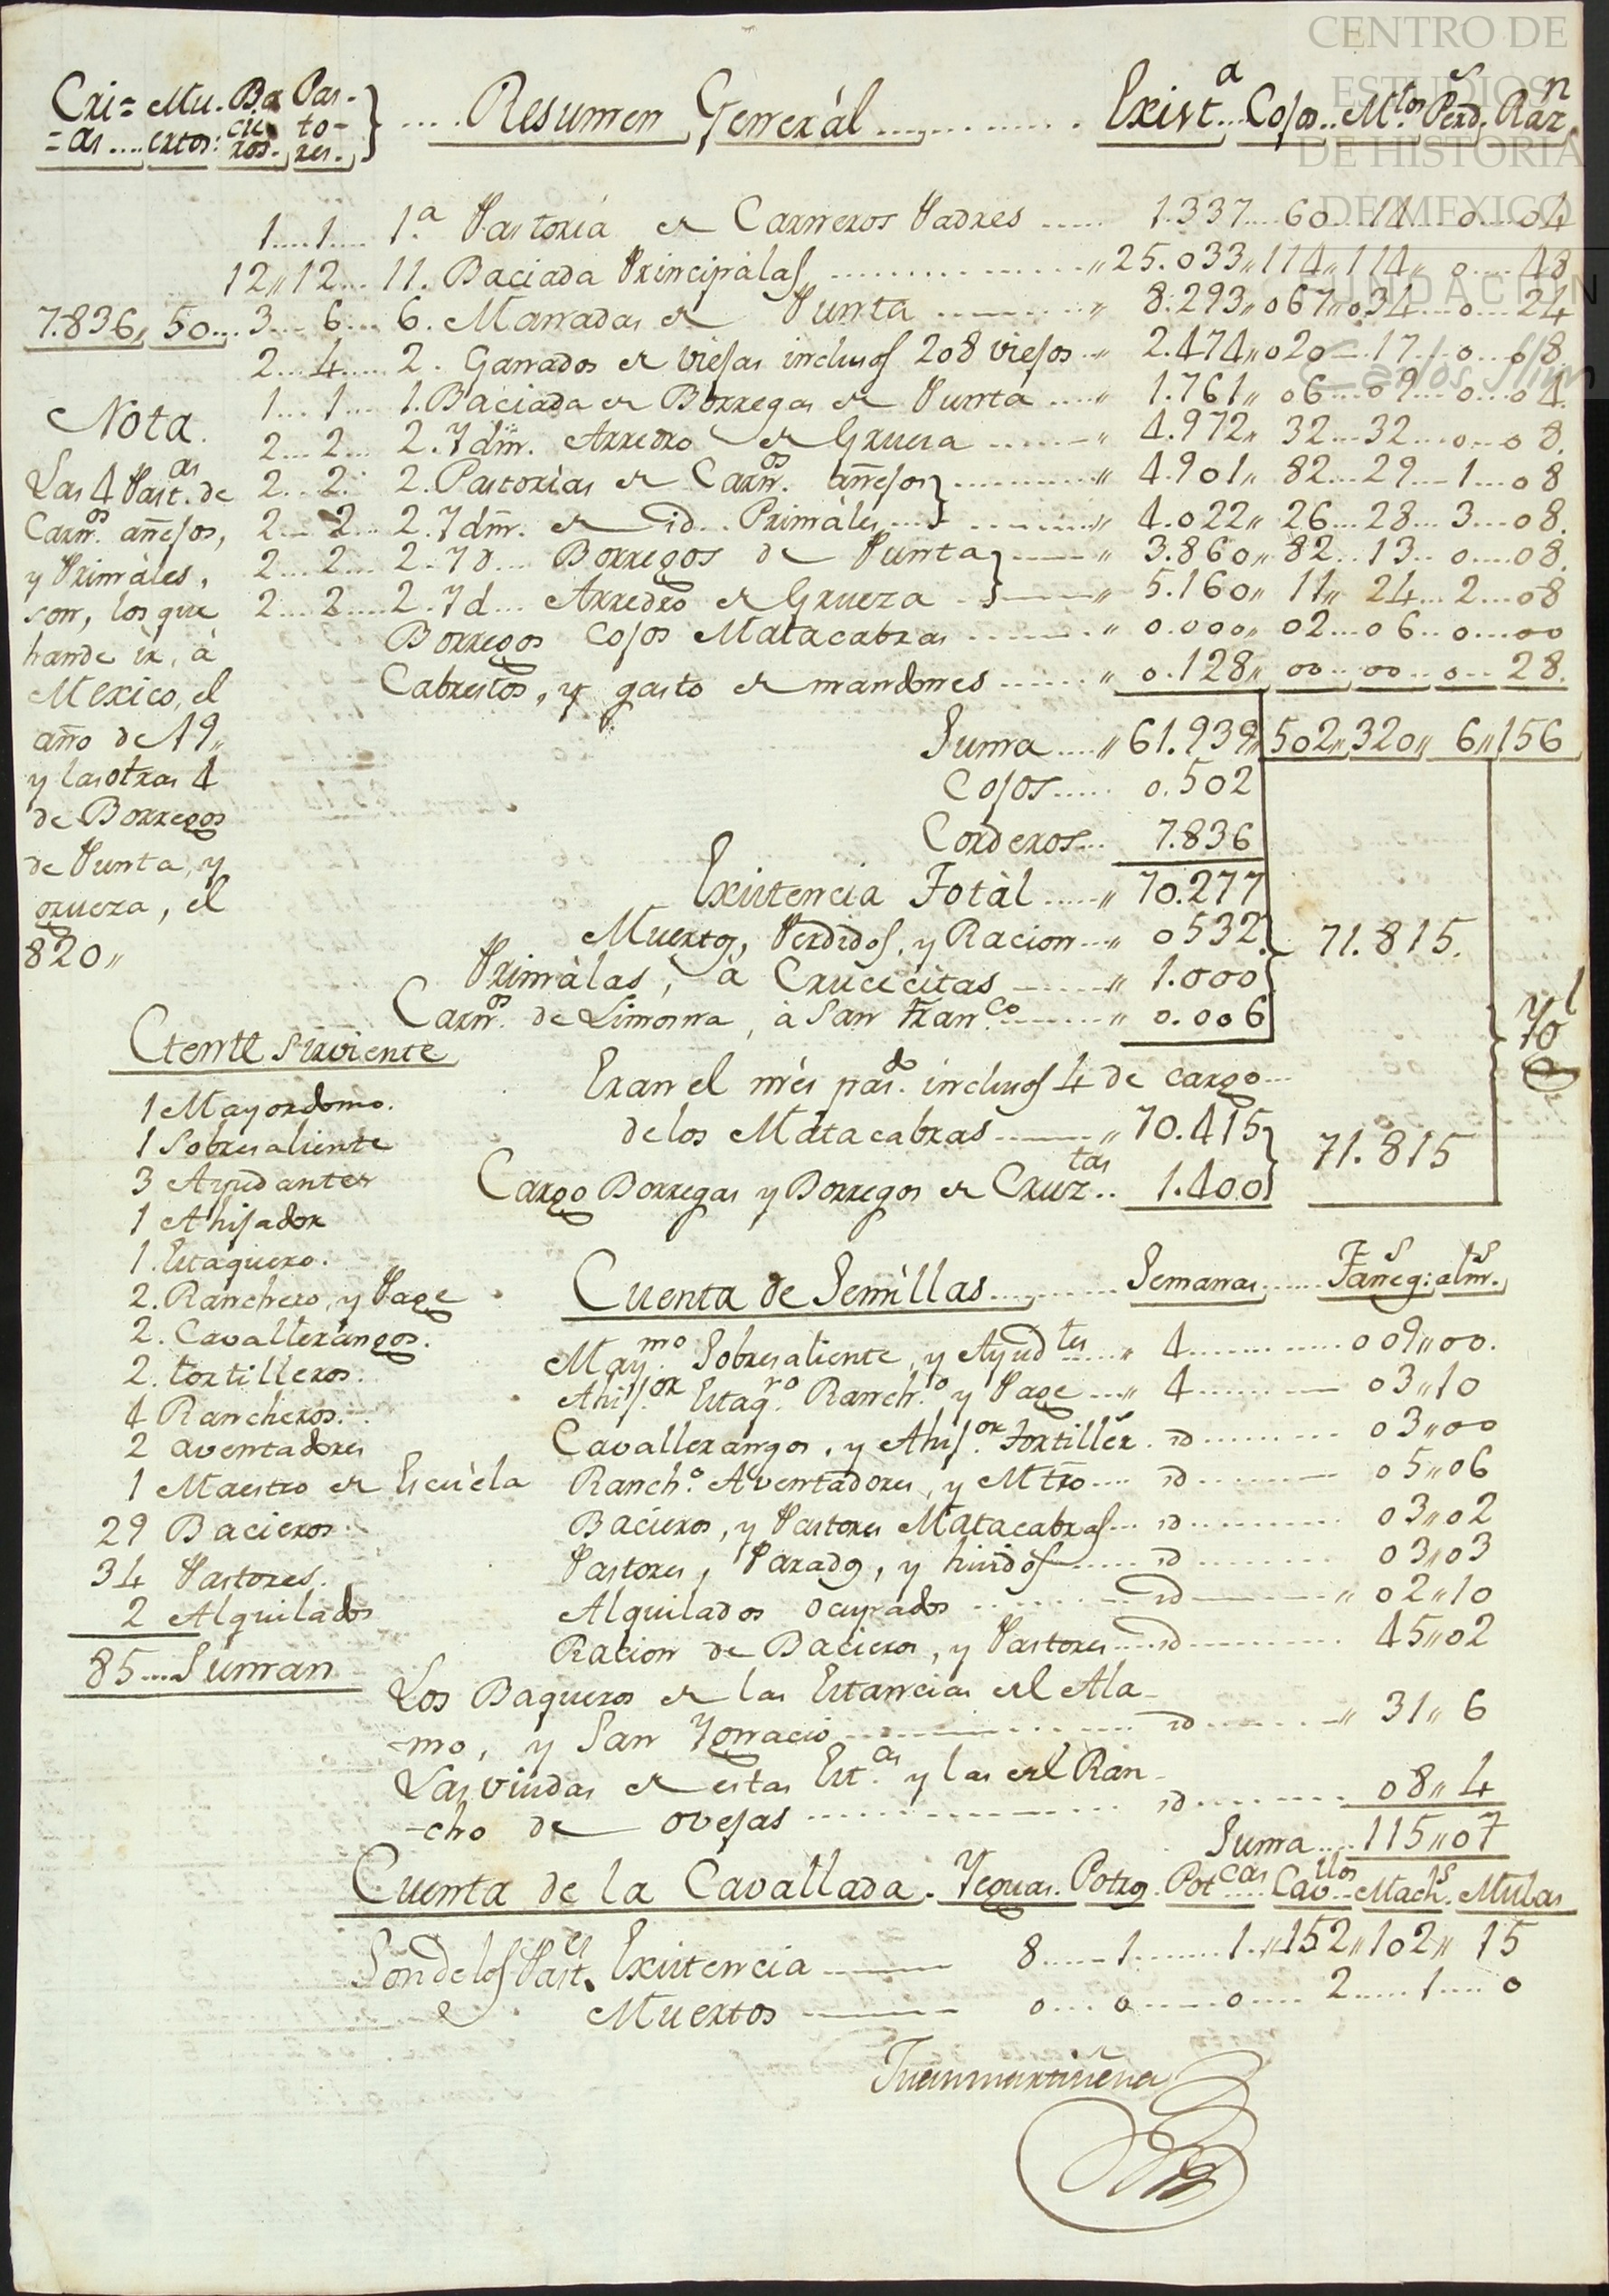 CENTRO DE
ESTUDIOS
DE HISTORIA
DE MEXICO
FUNDACIÓN
Carlos Slim
Cri= Mu. Ba Pas-
=as .... ertos: cie to-
ros. res.
Resumen Generàl
Exist.a Cojos Mtos Perd.s Ràn
1....1.... 1.a Pastoria de Carneros Padres ..... 1.337.... 60.... 14.... 0.... 04
12,, 12... 11. Baciada Principàlas ..... ,, 25.033,, 114,, 114,, 0.... 48
7.836,, 50... 3... 6... 6. Manadas de Punta ..... ,, 8.293,, 067,, 034... 0... 24
2... 4.... 2. Ganados de viejas inclusos 208 viejos .. ,, 2.474,, 020.... 17... 0... 08
1... 1... 1. Baciada de Borregas de Punta .... ,, 1.761,, 06... 09... 0... 04.
2... 2... 2. Ydm. Arredro de Gruesa ..... ,, 4.972,, 32... 32.... 0... 08.
2... 2. 2. Pastorias de Carn.os añejos} ..... ,, 4.901,, 82... 29... 1... 08
2... 2... 2. Ydm. de id.. Primàles...} ..... ,, 4.022,, 26... 28... 3... 08.
2... 2... 2. Yd... Borregos de Punta} .... ,, 3.860,, 82... 13... 0.... 08.
2... 2.... 2. Yd... Arredro de Grueza .} .... ,, 5.160,, 11,, 24... 2... 08
Borregos Cojos Matacabras ..... ,, 0.000,, 02... 06... 0.... 00
Cabrestos, y gasto de mandones ...... ,, 0.128,, 00... 00... 0... 28.
Suma .... ,, 61.939,, 502,, 320,, 6,, 156
Cojos ..... 0.502
Corderos... 7.836
Existencia Totàl ..... ,, 70.277
Muertos, Perdidos, y Racion .. ,, 0532.
Primàlas, à Crucecitas ..... ,, 1.000
Carn.os de Limosna, à San Fran.co ..... ,, 0.006
71.815.
Eran el mes pas.do inclusos 4 de cargo...
de los Matacabras ..... ,, 70.415
Cargo Borregas y Borregos de Cruz.tas .. 1.400
71.815
Nota.
Las 4 Past.as de
Carn.os añejos,
y Primàles,
son, los que
hande ir, à
Mexico, el
año de 19,,
y las otras 4
de Borregos
de Punta, y
grueza, el
820,,
Gente Sirviente
1 Mayordomo.
1 Sobresaliente
3 Ayudantes
1 Ahijador
1. Estaquero.
2. Ranchero, y Page
2. Cavallerangos.
2. tortilleros.
4 Rancheros.
2 aventadores
1 Maestro de Escuela
29 Bacieros
34 Pastores.
2 Alquilados
85.... Suman
Cuenta de Semillas ..... Semanas ..... Faneg.s: alm.s
May.mo Sobresaliente, y Ayud.tes .... ,, 4 ..... 009,, 00.
Ahij.or Estaq.ro Ranch.o y Page .... ,, 4 ..... 03,, 10
Cavallerangos, y Ahij.or Tortiller. id ..... 03,, 00
Ranch.o Aventadores, y Mtro .... id ..... 05,, 06
Bacieros, y Pastores Matacabras .... id ..... 03,, 02
Pastores, Parados, y huidos ..... id ..... 03,, 03
Alquilados ocupados ..... id ..... ,, 02,, 10
Racion de Bacieros, y Pastores .... id ..... 45,, 02
Los Baqueros de las Estancias del Ala-
-mo, y San Ygnacio ..... id ..... ,, 31,, 6
Las viudas de estas Est.as y las del Ran-
-cho de ovejas ..... id ..... 08,, 4
Suma .... 115,, 07
Cuenta de la Cavallada. Yeguas. Potros. Pot.cas Cav.llos Mach.s Mulas
Son de los Past.es Existencia ..... 8..... 1....... 1.,, 152,, 102,, 15
Muertos ..... 0.... 0..... 0..... 2..... 1.... 0
Juan martiñena